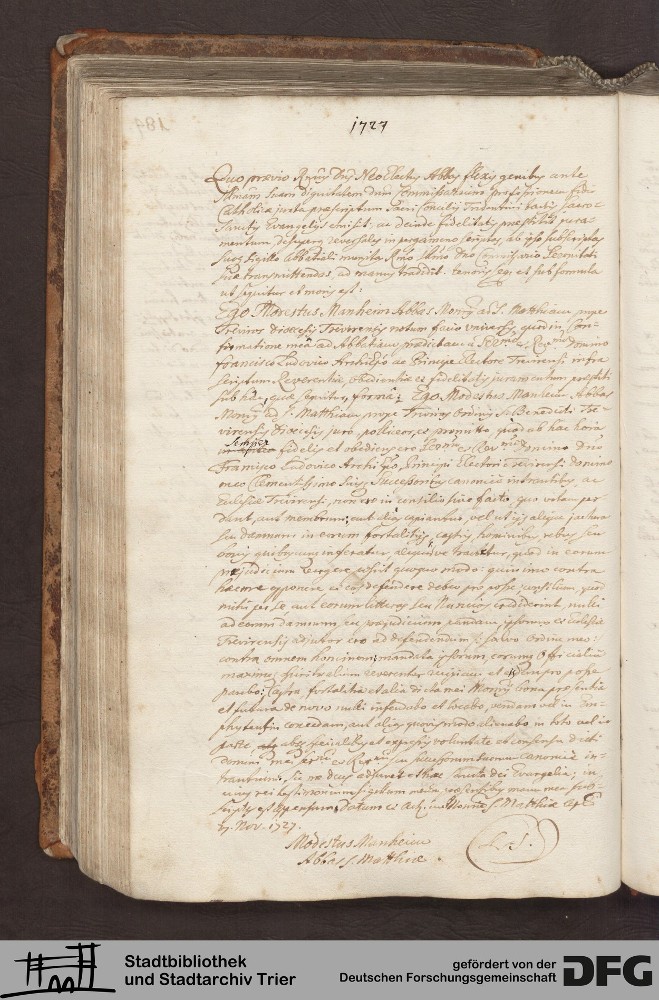 1727
Quo prævio Rmus Dnus NeoElectus Abbas flexis genibus ante
suam dignitatem dnm Commissarium professionem fidei
Catholicæ juxta præscriptum Sacri Concilij Tridentini tactis sacro-
sanctis Evangelijs emisit: ac deinde fidelitatis præstitit jura-
mentum, reversales in pergameno scriptas, ab ipso subscriptas
suoq sigillo abbatiali munitas dno Commissario
suæ transmittendas ad manus tradidit. tenoris seq et sub formula
ut sequitur et moris est:
Ego Modestus Manheim Abbas Monrij ad S. Matthiam prope
Treviros diœcesis Trevirensis notum facio universis, quod in Con-
firmatione mea ad Abbatiam prædictam a Sermo et Revmo Domino
Francisco Ludovico ArchiEpo ac Principe Electore Trevirensi infra
scriptum Reverentiæ, obedientiæ et fidelitatis juramentum præstiti
sub hac, quæ sequitur, forma: Ego Modestus Manheim Abbas
Monrij ad S. Matthiam prope Treviros Ordinis S. Benedicti Tre-
virensis Diœcesis juro, polliceor, et promitto quod ab hac hora
semper
fidelis et obediens ero Sermo et Revmo Domino Dno
Francisco Ludovico ArchiEpo, Principi Electori Trevirensi domino
meo Clementissimo suisq Successoribus canonice intrantibus, ac
Ecclesiæ Trevirensi, non ero in consilio sive facto, quo vitam per-
dant, aut membrum, aut alias capiantur, vel ut ijs aliqua jactura
seu damnum in eorum fortalitijs, castris, hominibus rebus seu
bonis quibuscunq inferatur, aliquidve tractetur, quod in eorum
præjudicium vergere possit quoquo modo: quinimo contra
hæc me opponere et eos defendere debeo pro posse, consilium, quod
mihi per se, aut eorum litteras seu Nuncios crediderint, nulli
ad eorum damnum, seu præjudicium pandam, ipsorum et ecclesiæ
Trevirensis adjutor ero ad defendendum salvo Ordine meo:
contra omnem hominem; mandata ipsorum, eorumq Officialium
maxime spiritualium reverenter recipiam et semper pro posse
parebo; Castra, fortalitia et alia dicti mei Monrij bona præsentia
et futura de novo nulli infeudabo et locabo, vendam vel in Em-
phyteusin concedam, aut alias quovis modo alienabo in toto vel in
parte, absq speciali et expressa voluntate et consensu dicti
domini mei Sermi et Revmi seu successorum suorum canonice in-
trantium. sic me deus adjuvet et hæc sancta dei Evangelia, in
cujus rei testimonium sigillum meum præsentibus manu mea sub-
scriptis est appensum. Datum et Act. in Monrio S. Matthiæ
17. Nov. 1727.
Modestus Manheim
Abbas S. Matthiæ
L. S.
Stadtbibliothek
und Stadtarchiv Trier
gefördert von der
Deutschen Forschungsgemeinschaft
DFG